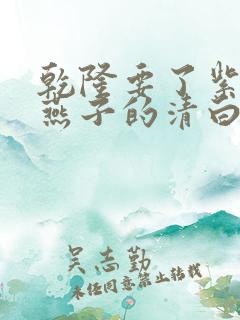 乾隆要了紫
燕子的清白
吴志勤
未经同意禁止转载